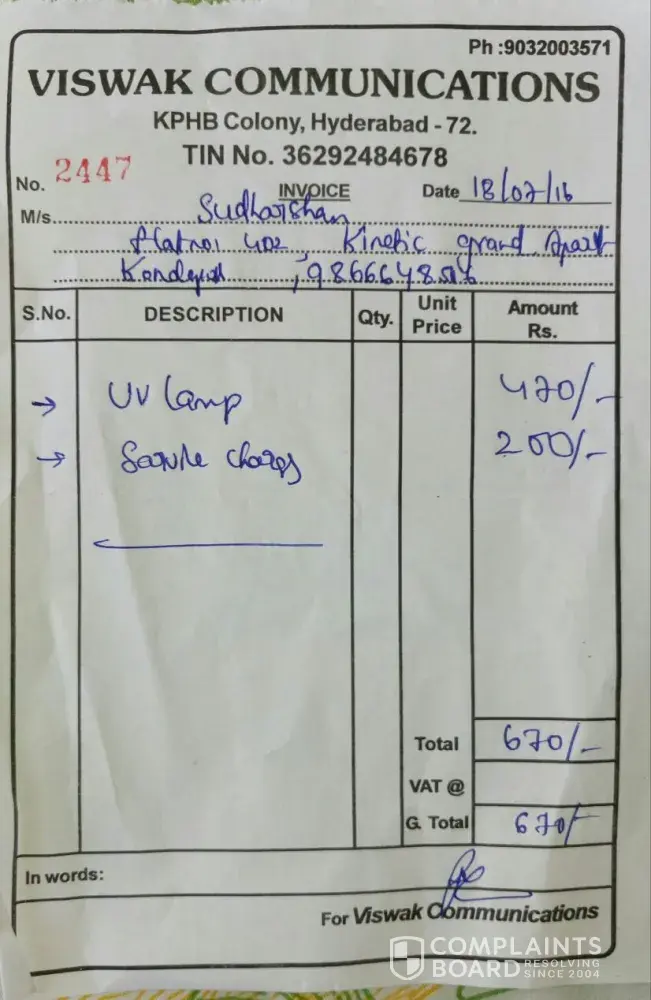 Ph :9032003571
VISWAK COMMUNICATIONS
KPHB Colony, Hyderabad - 72.
TIN No. 36292484678
No. 2447
INVOICE
Date 18/07/16
M/s. Sudharshan
Flat no: 402, Kinetic grand Apart
S.No. DESCRIPTION Qty. Unit Price Amount Rs.
→ UV Lamp 470/-
→ 200/-
Total 670/-
VAT @
G. Total 670/-
In words:
For Viswak Communications
COMPLAINTS
BOARD RESOLVING SINCE 2004